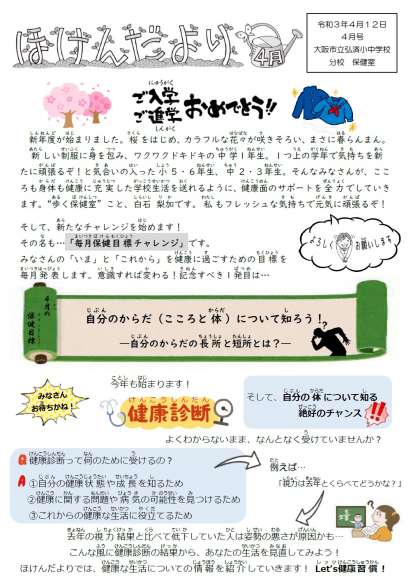 ほけんだより
4月
令和3年4月12日
4月号
大阪市立弘済小中学校
分校 保健室
ご入学
ご進学
おめでとう!!
新年度が始まりました。桜をはじめ、カラフルな花々が咲きそろい、まさに春らんまん。
新しい制服に身を包み、ワクワクドキドキの中学1年生。1つ上の学年で気持ちを新
たに頑張るぞ!と気合いの入った小5・6年生、中2・3年生。そんなみなさんが、ここ
ろも身体も健康に充実した学校生活を送れるように、健康面のサポートを全力でしていき
ます。“歩く保健室”こと、白石梨加です。私もフレッシュな気持ちで元気に頑張るぞ!
そして、新たなチャレンジを始めます!
その名も…「毎月保健目標チャレンジ」です。
みなさんの「いま」と「これから」を健康に過ごすための目標を
毎月発表します。意識すれば変わる!記念すべき1発目は…
よろしくお願いします
4月の
保健目標
自分のからだ(こころと体)について知ろう!
―自分のからだの長所と短所とは?―
みなさん
お待ちかね!
今年も始まります!
健康診断
そして、自分の体について知る
絶好のチャンス!!
よくわからないまま、なんとなく受けていませんか?
Q 健康診断って何のために受けるの?
A ①自分の健康状態や成長を知るため
②健康に関する問題や病気の可能性を見つけるため
③これからの健康な生活に役立てるため
例えば…
「視力は去年とくらべてどうかな?」
去年の視力結果と比べて低下していた人は姿勢の悪さが原因かも…
こんな風に健康診断の結果から、あなたの生活を見直してみよう!
ほけんだよりでは、健康な生活についての情報を紹介していきます!Let's健康習慣!